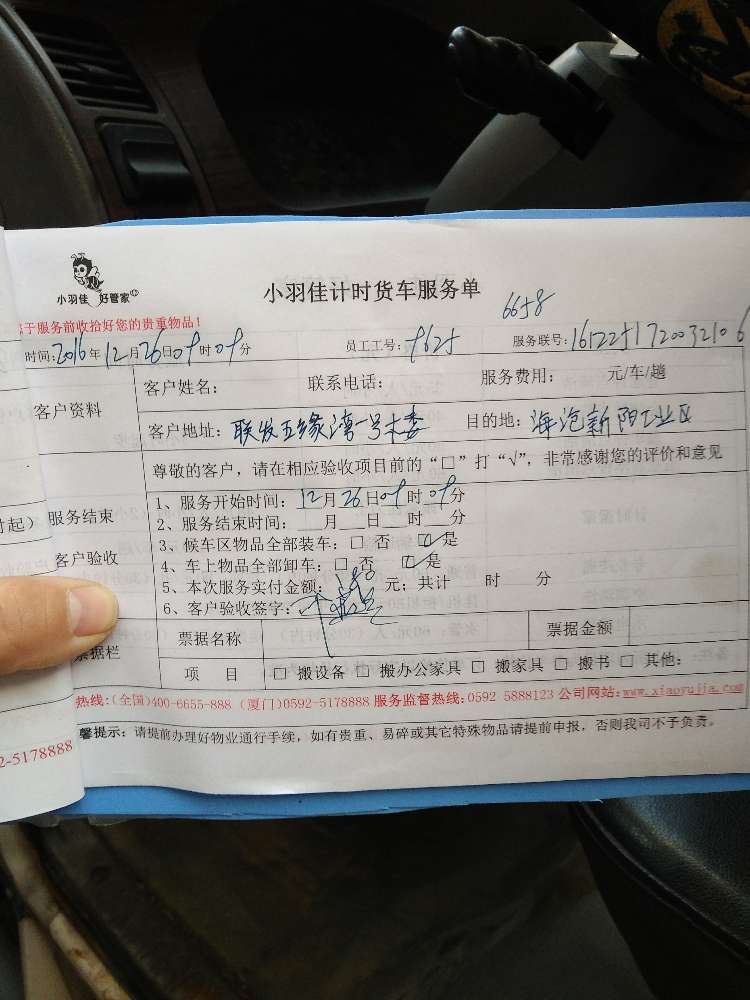 小羽佳 好管家
小羽佳计时货车服务单
6658
于服务前收拾好您的贵重物品!
时间:2016年12月26日09时09分 员工工号: 服务联号:
客户资料 客户姓名: 联系电话: 服务费用: 元/车/趟
客户地址:联发五缘湾一号 目的地: 新阳工业区
尊敬的客户,请在相应验收项目前的“□”打“√”,非常感谢您的评价和意见
时起) 服务结束
客户验收
1、服务开始时间:12月26日09时09分
2、服务结束时间: 月 日 时 分
3、候车区物品全部装车:□ 否 ☑ 是
4、车上物品全部卸车:□ 否 ☑ 是
5、本次服务实付金额: 元;共计 时 分
6、客户验收签字:
票据栏 票据名称 票据金额
项 目 □ 搬设备 □ 搬办公家具 □ 搬家具 □ 搬书 □ 其他:
热线:(全国)400-6655-888 (厦门)0592-5178888 服务监督热线:0592 5888123 公司网站:www.xiaoyujia.com
馨提示:请提前办理好物业通行手续,如有贵重、易碎或其它特殊物品请提前申报,否则我司不予负责。
2-5178888